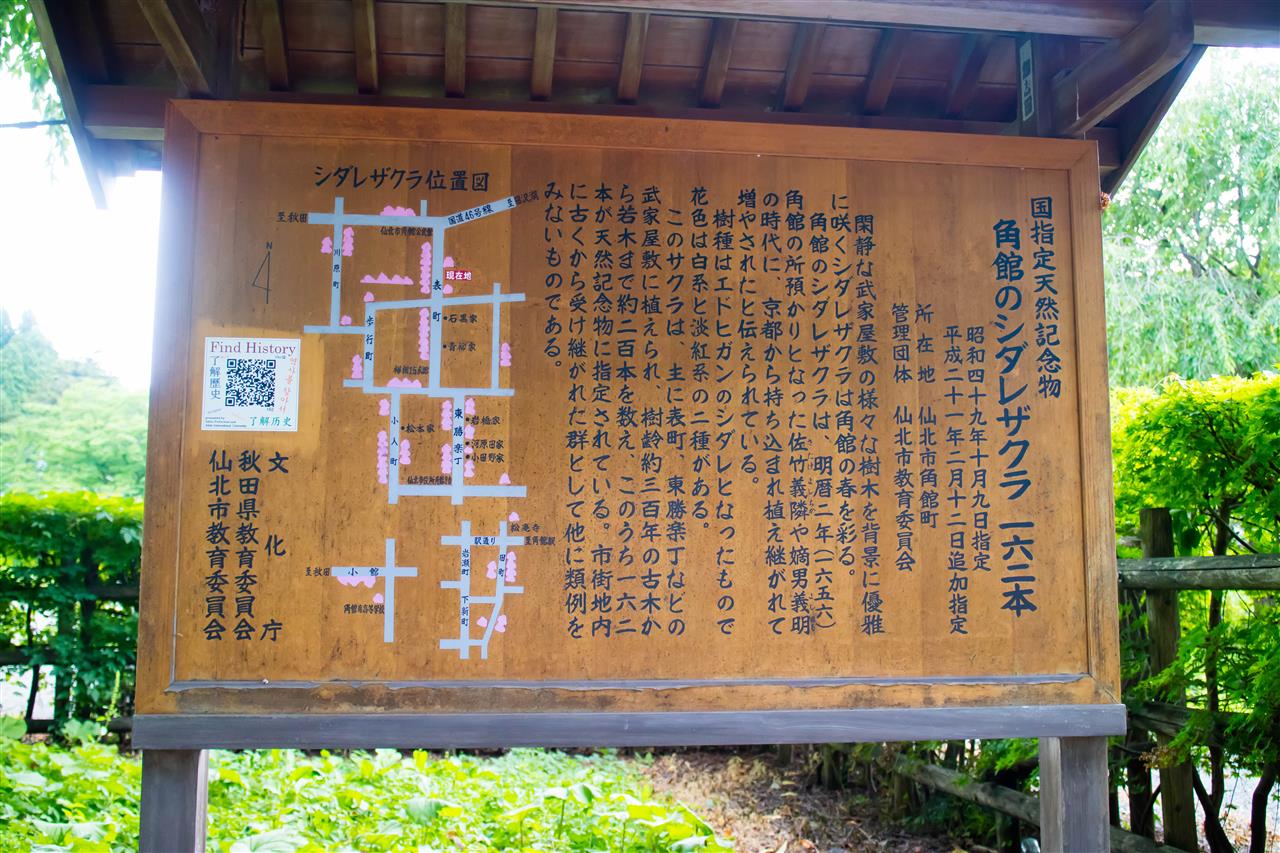 国指定天然記念物
角館のシダレザクラ 一六二本
昭和四十九年十月九日指定
平成二十一年二月十二日追加指定
所在地 仙北市角館町
管理団体 仙北市教育委員会
閑静な武家屋敷の様々な樹木を背景に優雅
に咲くシダレザクラは角館の春を彩る。
角館のシダレザクラは、明暦二年(一六五六)
角館の所預かりとなった佐竹義隣や嫡男義明
の時代に、京都から持ち込まれ植え継がれて
増やされたと伝えられている。
樹種はエドヒガンのシダレとなったもので
花色は白系と淡紅系の二種がある。
このサクラは、主に表町、東勝楽丁などの
武家屋敷に植えられ、樹齢約三百年の古木か
ら若木まで約二百本を数え、このうち一六二
本が天然記念物に指定されている。市街地内
に古くから受け継がれた群として他に類例を
みないものである。
シダレザクラ位置図
至秋田
国道46号線
N
川原町
現在地
表町
石黒家
歩行町
青柳家
小人町
松本家
東勝楽丁
岩橋家
河原田家
小田野家
松庵寺
駅通り
至角館駅
岩瀬町
田町
下新町
至秋田
小館
Find History
了解歷史
역사를 찾아서
了解历史
文化庁
秋田県教育委員会
仙北市教育委員会